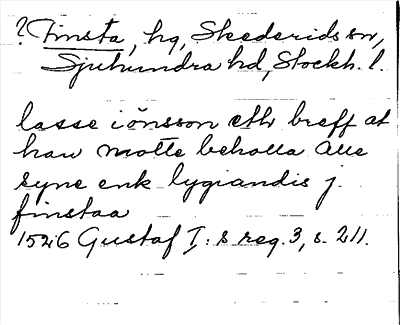 ? Finsta, hg, Skederids sn,
Sjuhundra hd, Stockh. l.
lasse iönsson eth breff at
han motte beholla alle
syne enk lygiandis j
finstaa
1526 Gustaf I:s reg. 3, s. 211.